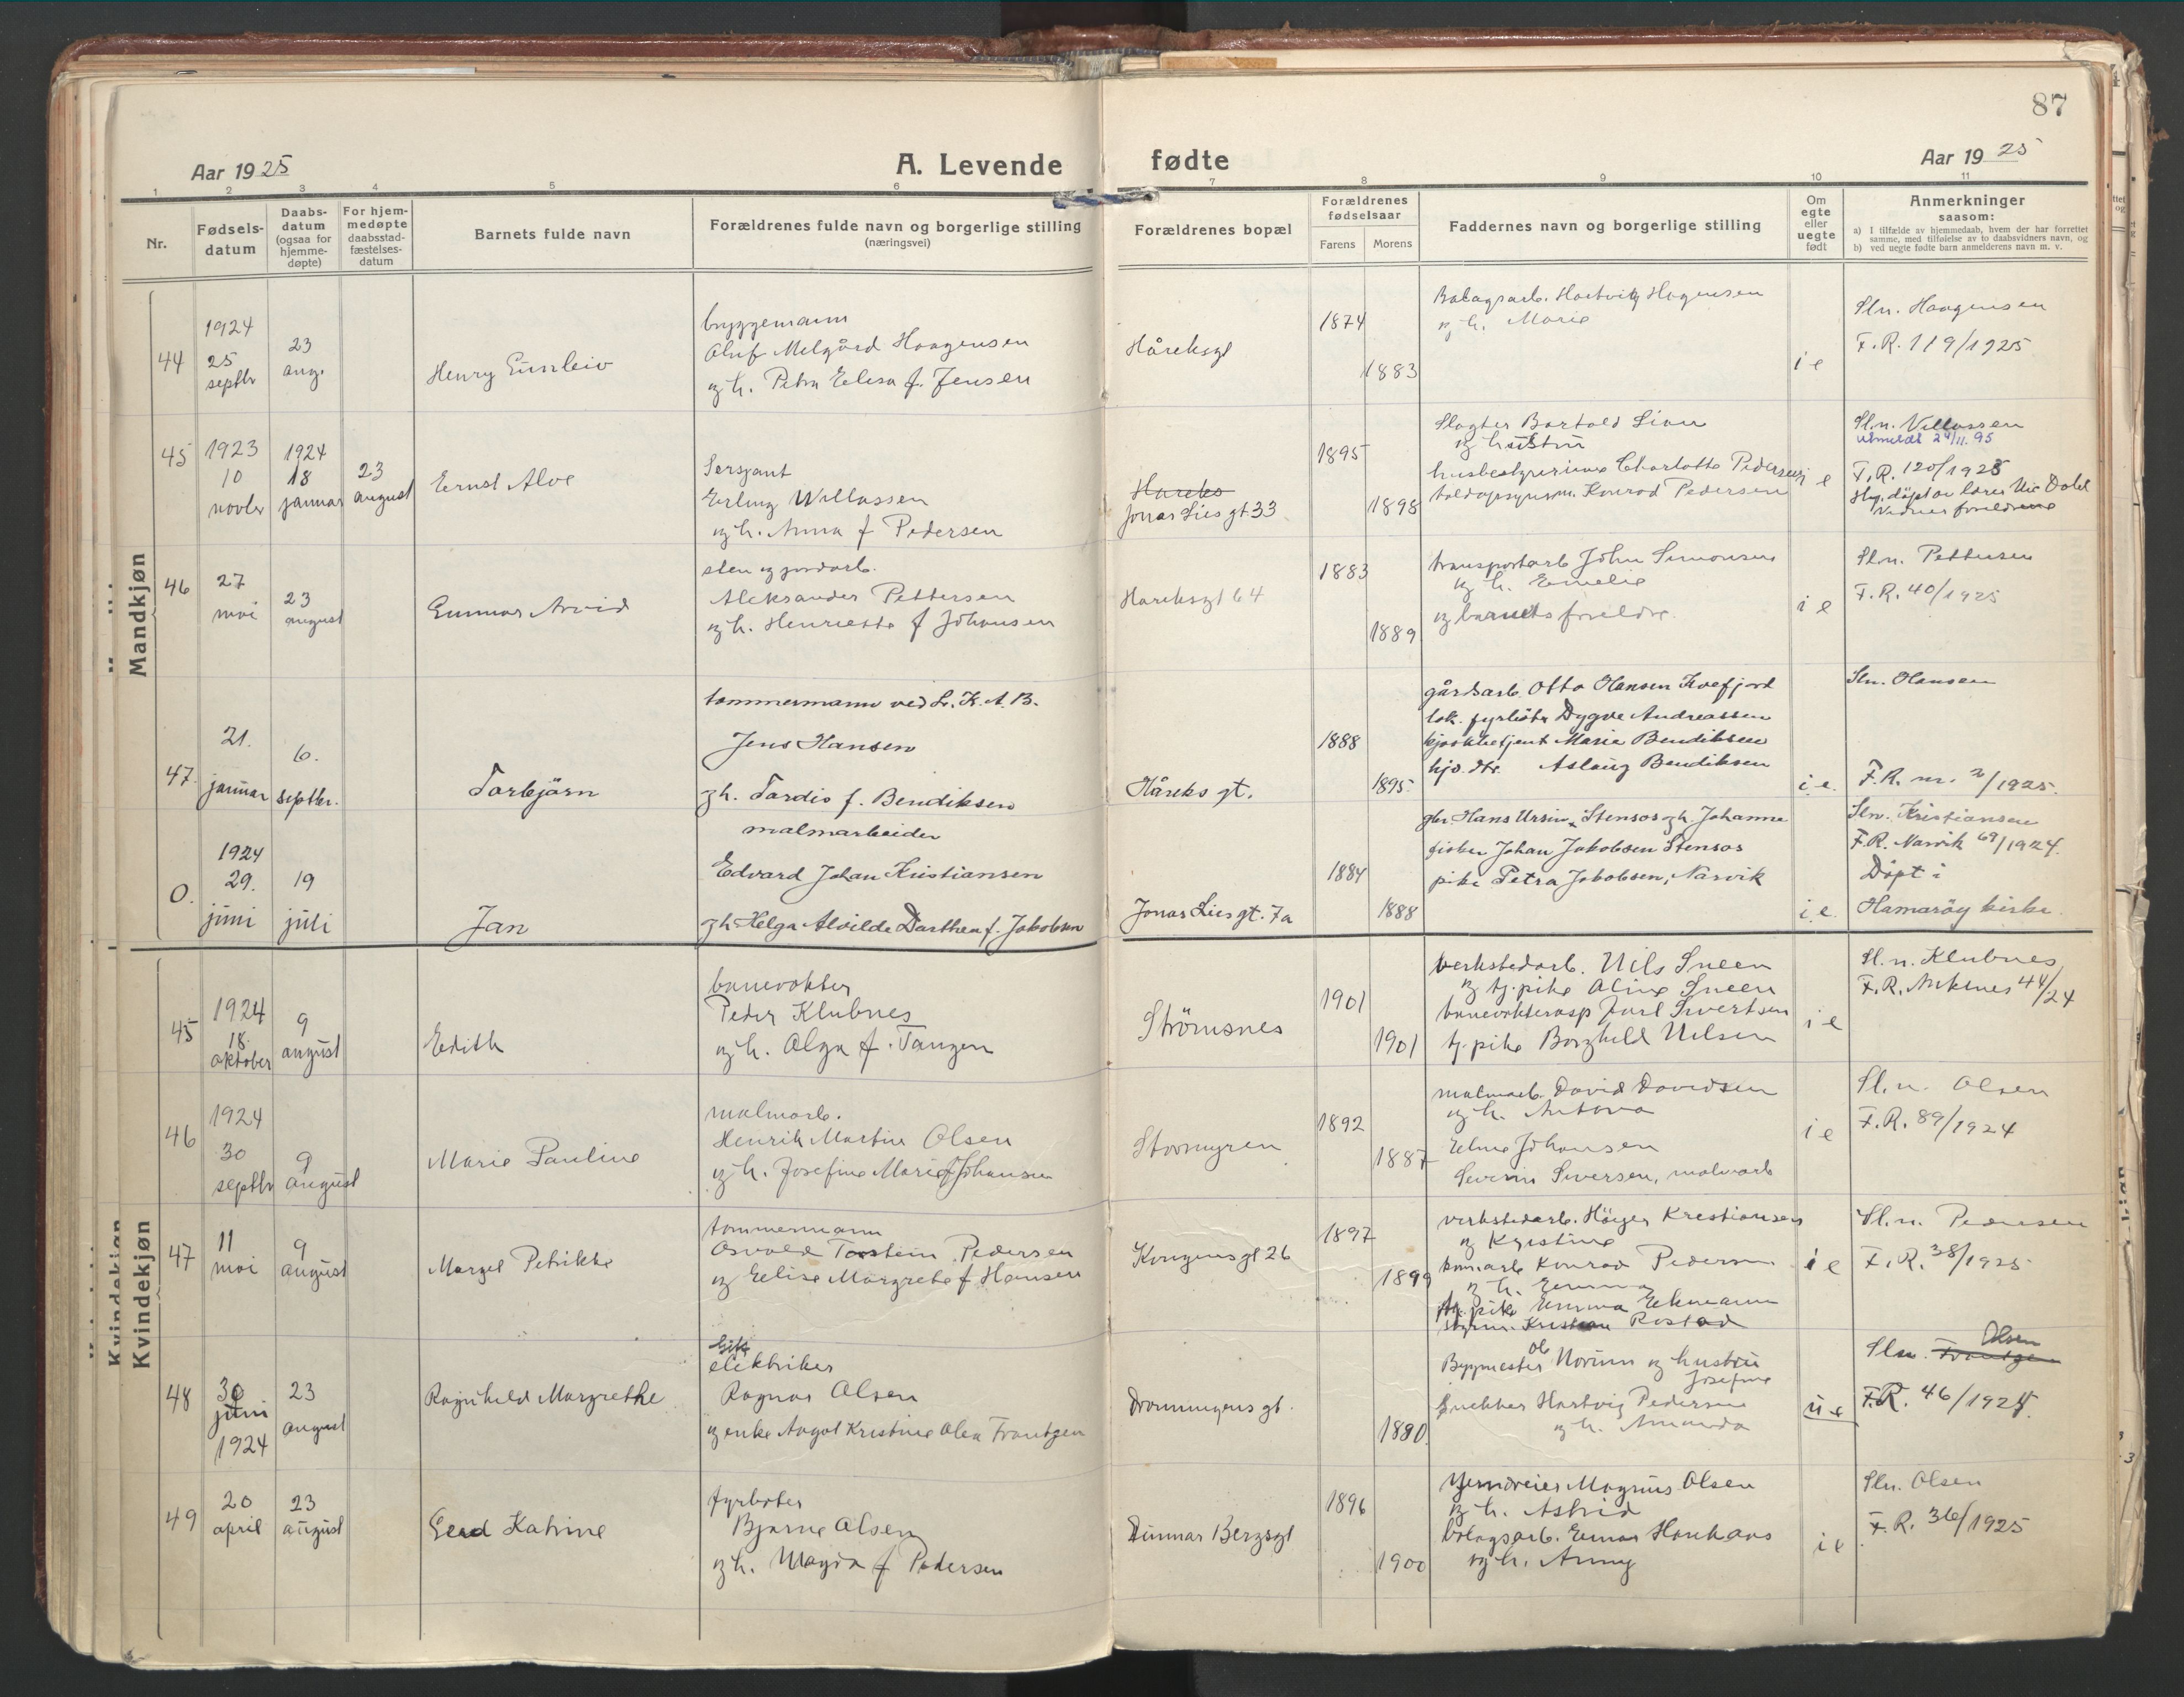 87
Aar 1925
A. Levende fødte
Aar 1925
1 2 3 4 5 6 7 8 9 10 11
Nr.
Fødsels-
datum
Daabs-
datum
(ogsaa for
hjemme-
døpte)
For hjem-
medøpte
daabsstad-
fæstelses-
datum
Barnets fulde navn
Forældrenes fulde navn og borgerlige stilling
(næringsvei)
Forældrenes bopæl
Forældrenes
fødselsaar
Farens
Morens
Faddernes navn og borgerlige stilling
Om
egte
eller
uegte
født
Anmerkninger
saasom:
a) I tilfælde av hjemmedaab, hvem der har forrettet
samme, med tilføielse av to daabsvidners navn, og
b) ved uegte fødte barn anmelderens navn m. v.
Mandkjøn
44
1924
25
septbr
23
aug.
Henry Gunleiv
bryggemann
Oluf Melgård Haagensen
og h. Petra Elesa f. Jensen
Håreksgt
1874
1883
Hartvig Hagensen
og h. Marie
i e
Sln. Haagensen
F.R. 119/1925
45
1923
10
novbr
1924
18
januar
23
august
Ernst Alve
Sersjant
Erling Willassen
og h. Anna f Pedersen
Hareks
Jonas Lies gt 33
1895
1898
Slagter Bartold Sian
og hustru
husbestyrerinne Charlotte Pedersen
Konrad Pedersen
i e
Sl.n. Villassen
utmeldt 24/11.95
F.R. 120/1925
Hj. døpt av lærer Dahl
Vidner foreldrene
46
27
mai
23
august
Gunnar Arvid
sten og jordarb.
Aleksander Pettersen
og h. Henriette f Johansen
Hareksgt 64
1883
1889
transportarb John Simonsen
og h. Emelie
og barnets foreldre.
i e
Sln. Pettersen
F.R. 40/1925
47.
21.
januar
6.
septbr.
Torbjørn
tømmermann ved L.K.A.B.
Jens Hansen
og h. Tordis f. Bendiksen
Håreks gt.
1888
1895.
gårdsarb. Otto Hansen Kvefjord
lok. fyrbøter Dygve Andreassen
kjøkkbetjent Marie Bendiksen
hjv. dtr. Aslaug Bendiksen
i.e.
Sln. Hansen
F.R. nr. 2/1925.
0.
1924
29.
juni
19
juli
Jan
malmarbeider
Edvard Johan Kristiansen
og h Helga Alvilde Dorthea f. Jakobsen
Jonas Lies gt. 7a
1884
1888
gbr. Hans Ursin Stensos og h. Johanne
fisker Johan Jakobsen Stensos
pike Petra Jakobsen, Narvik
i.e.
Sln. Kristiansen
F.R. Narvik 69/1924.
Døpt i
Hamarøy kirke.
Kvindekjøn
45
1924
18.
oktober
9
august
Edith
banevokter
Peder Klubnes
og h. Olga f. Tangen
Strömsnes
1901
1901
verkstedarb. Nils Sneen
og tj.pike Aline Sneen
banevokterasp Jarl Sivertsen
tj. pike Borghild Nilsen
i e
Sl.n. Klubnes
F.R. Ankenes 44/24
46
1924
30
septbr
9
august
Marie Pauline
malmarb.
Henrik Martin Olsen
og h. Josefine Marie f Johansen
Stormyren
1892
1887
malmarb. David Davidsen
og h. Antona
Eline Johansen
Severin Siversen, malmarb
i e
Sl.n. Olsen
F.R. 89/1924
47
11
mai
9
august
Margel Petrikke
tømmermann
Osvald Torstein Pedersen
og Elise Margrete f Hansen
Kongensgt 26
1897
1899
verkstedarb. Høiger Kristiansen
og Kristine
komarb Konrad Pedersen
og h. Emma
tj. pike Emma Ekmann
styrm. Kristian Rostad
i e
Sl.n. Pedersen
F.R. 38/1925
48
30
juni
1924
23
august
Ragnhild Margrethe
elektriker
Ragnar Olsen
og enke Angot Kristine Olea Frantzen
Dronningens gt.
1880.
Byggmester Ole Norum og hustru
Josefine
snekker Hartvig Pedersen
og h. Amanda
u e
Sln. Frantzen Olsen
F.R. 46/1924.
49
20
april
23
august
Gerd Katrine
fyrbøter
Bjarne Olsen
og h. Magda f Pedersen
Gunnar Bergsgt
1896
1900
Magnus Olsen
og h. Astrid
bolagsarb. Einar Haukaas
og h. Anny
i e
Sln. Olsen
F.R. 36/1925